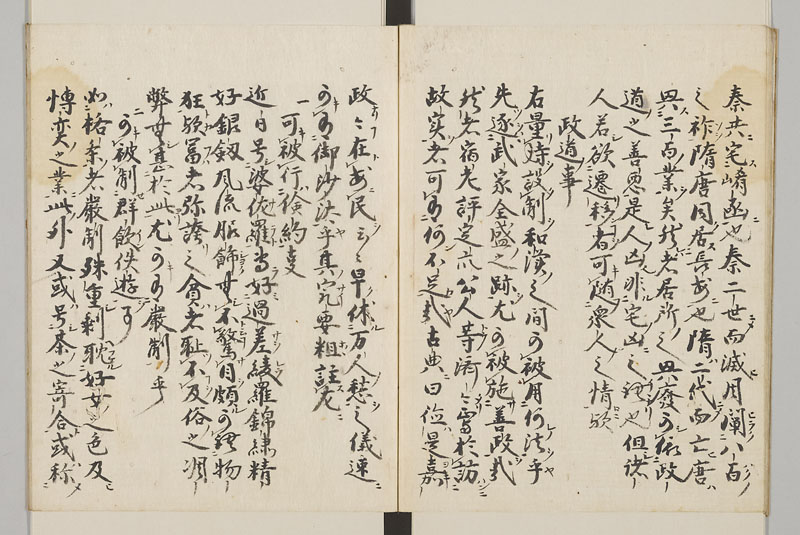 秦共宅崤函也秦二世而滅周闡八百
之祚隋唐同居長安也隋二代而亡唐
興三百業矣然者居所之興廃可依政
道之善悪是人凶非宅凶之謂也但諸
人若欲遷移者可随衆人之情歟
政道事
右量時設制和漢之間可被用何法乎
先逐武家全盛之跡尤可被施善政哉
然者宿老評定衆公人等済々焉於訪
故実者可有何不足哉古典曰徳是嘉
政々在安民云々早休万人愁之儀速
可有御沙汰乎其宛要粗註左
一可被行倹約事
近日号婆佐羅専好過差綾羅錦繍精
好銀剱風流服飾無不驚目頗可謂物
狂歟冨者弥誇之貧者耻不及俗之凋
弊無甚於此尤可有厳制乎
可被制群飲佚遊事
如格条者厳制殊重剰耽好女之色及
博奕之業此外又或号茶之寄合或称